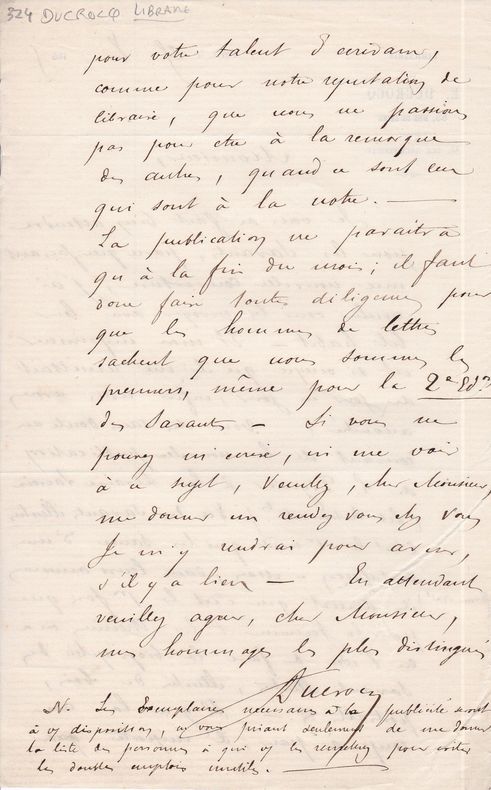 324 DUCROCQ LIBRAIRE
pour votre talent d'écrivain,
comme pour notre réputation de
libraire, que nous ne passions
pas pour être à la remorque
des autres, quand ce sont eux
qui sont à la notre. —
La publication ne paraitra
qu'à la fin du mois ; il faut
donc faire toute diligence pour
que les hommes de lettres
sachent que nous sommes les
premiers, même pour la 2e Edon
des Savants — Si vous ne
pouvez m'écrire, ni me voir
à ce sujet, Veuillez, cher Monsieur,
me donner un rendez vous chez vous
Je m'y rendrai pour arriver,
s'il y a lieu — En attendant
veuillez agréer, cher Monsieur,
mes hommages les plus distingués
Ducrocq
N. Les Exemplaires nécessaires à la publicité seront
à vs disposition, en vous priant seulement de me donner
la liste des personnes à qui vs les remettez pour éviter
les doubles emplois inutiles. —